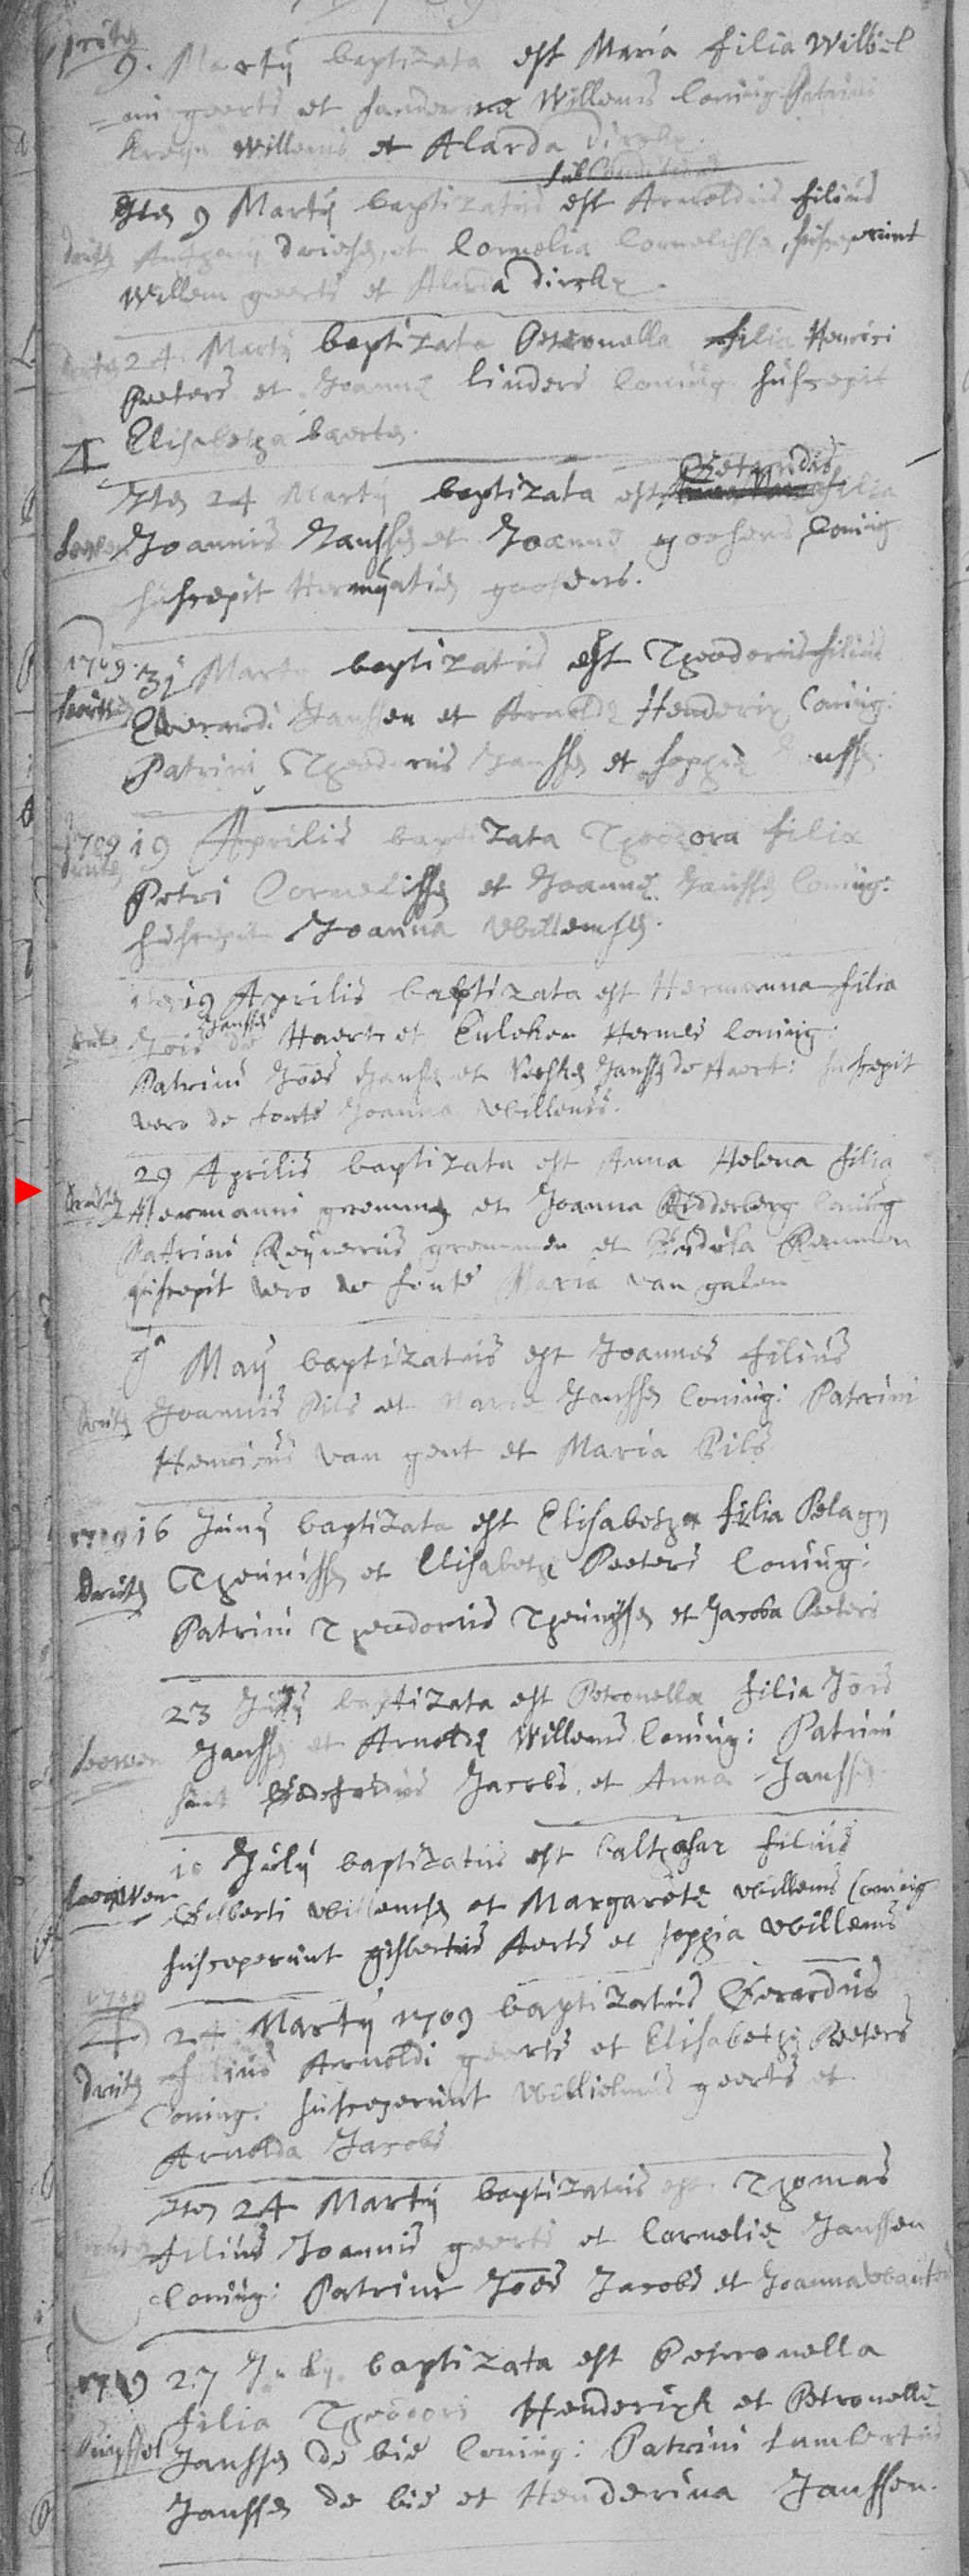 9. Martij baptizata est Maria filia Wilhel
mi geerts et handerinæ Willems Coniug: Patrini
Willems et Alarda Dircks.
sub Conditione
Item 9 Martij baptizatus est Arnoldus filius
druten Antonij driesen, et Cornelia Cornelisse, susceperunt
Willem geerts et Alarda dirckx.
druten 24. Martij baptizata Petronella filia Henrici
Peeters et Joannæ linders Coniug: suscepit
Elisabetha baerts.
Gertrudis
Item 24 Martij baptizata est filia
leewen Joannis Janssen et Joannæ goosens, Coniug
suscepit Hermijntien goosens.
1709. 31 Martij baptizatus est Theodorus filius
Everardi Hanssen et Arnoldæ Henderix Coniug:
Patrini Theodorus Janssen et
1709 19 Aprilis baptizata Theodora filia
druten
Petri Cornelissen et Joannæ Janssen Coniug:
suscepit Joanna Willemsen.
item 19 Aprilis baptizata est Hermanna filia
Janssen
druten Jois de Haert et Euleken Hermes Coniug:
Patrini Joes Jansen et Janssen de Haert: suscepit
vero de fonte Joanna Willems.
29 Aprilis baptizata est Anna Helena filia
druten Hermanni gremmen et Joanna Ridderberg Coniug
Patrini Reynerus gremmen et Remmen
suscepit vero de fonte Maria van galen
1ª Maij baptizatus est Joannes filius
druten Joannis Pils et Mariæ Janssen Coniug: Patrini
Henricus van gent et Maria Pils
1709 16 Junij baptizata est Elisabetha filia Pelagij
druten Theunissen et Elisabethæ Peeters Coniug:
Patrini Theodorus Theunissen et Jacoba Peeters
23 baptizata est Petronella filia Jois
leewen Janssen et Arnoldæ Willems Coniug: Patrini
sunt Godefridus Jacobs, et Anna Janssen
10 Julij baptizatus est baltzasar filius
leeuwen Gisberti Willemsen et Margaretæ Willems Coniug
susceperunt gisbertus Aerts et Willems
1709
24 Martij 1709 baptizatus Gerardus
druten filius Arnoldi geerts et Elisabethæ Peeters
Coniug. susceperunt Wilhelmus geerts et
Arnolda Jacobs
Item 24 Martij baptizatus est Thomas
druten filius Joannis geerts et Corneliæ Janssen
Coniug: Patrini Joes Jacobs et Joanna
1709 27 July baptizata est Petronella
filia Theodori Henderickx et Petronellæ
Janssen de bie Coniug: Patrini Lambertus
Janssen de bie et Henderina Janssen.